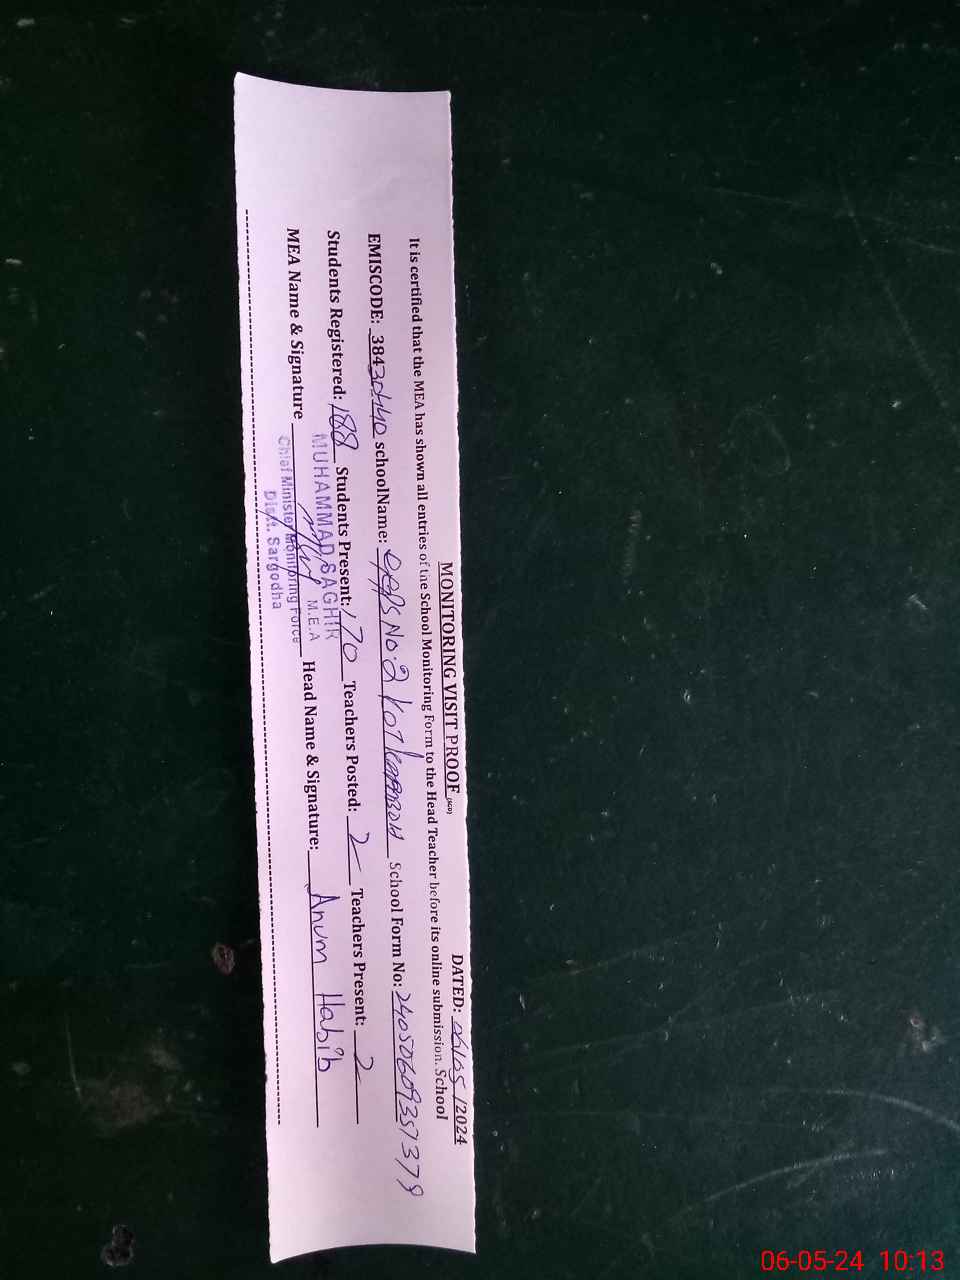 MONITORING VISIT PROOF (SCD)
DATED: 06/05 /2024
It is certified that the MEA has shown all entries of the School Monitoring Form to the Head Teacher before its online submission. School
EMISCODE: 38430440 schoolName: GGPS No. 2 KOT KAMBOH School Form No:
Students Registered: 188 Students Present: 170 Teachers Posted: 2 Teachers Present: 2
MEA Name & Signature Head Name & Signature: Anum Habib
MUHAMMAD SAGHIR
M.E.A
Chief Minister Monitoring Force
Distt. Sargodha
06-05-24 10:13